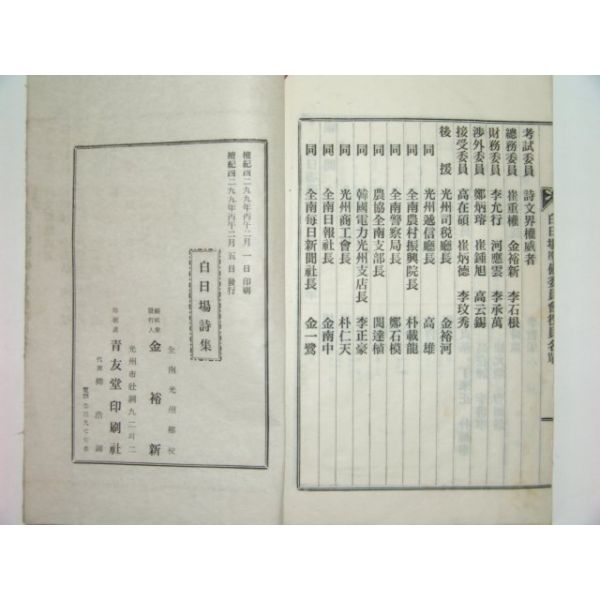 白日場準備委員會任員名單
考試委員 詩文界權威者
總務委員 崔重權 金裕新 李石根
財務委員 李允行 河應雲 李承萬
涉外委員 鄭炳瑢 崔鍾旭 高云錫
接受委員 高在碩 崔炳德 李玟秀
後援 光州司税廳長 金裕河
同 光州遞信廳長 高雄
同 全南農村振興院長 朴載龍
同 全南警察局長 鄭石模
同 農協全南支部長 閔達植
同 韓國電力光州支店長 李正豪
同 光州商工會長 朴仁天
同 全南日報社長 金南中
同 全南每日新聞社長 金一鷺
檀紀四二九九年丙午二月一日印刷
檀紀四二九九年丙午二月五日發行
白日場詩集
全南光州鄕校
編輯兼發行人 金裕新
光州市社洞九二의二
印刷處 青友堂印刷社
代表